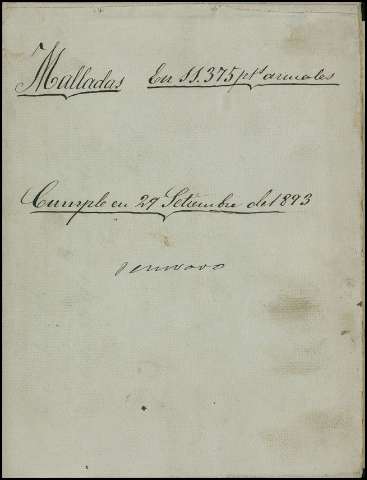 Malladas En 11.375 pts. anuales
Cumple en 29 Setiembre de 1893